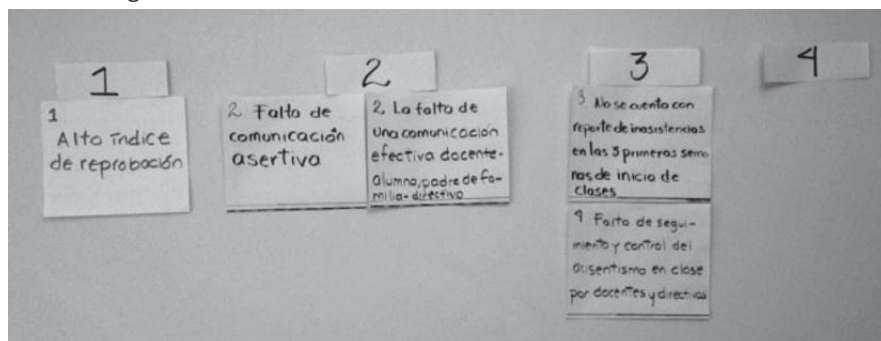 1
2
3
4
1
Alto índice
de reprobación
2 Falta de
comunicación
asertiva
2. La falta de
una comunicación
efectiva docente-
alumno, padre de fa-
milia-directivo
3 No se cuenta con
reporte de inasistencias
en las 3 primeras sema
nas de inicio de
clases
9 Falta de segui-
miento y control del
ausentismo en clase
por docentes y directivos